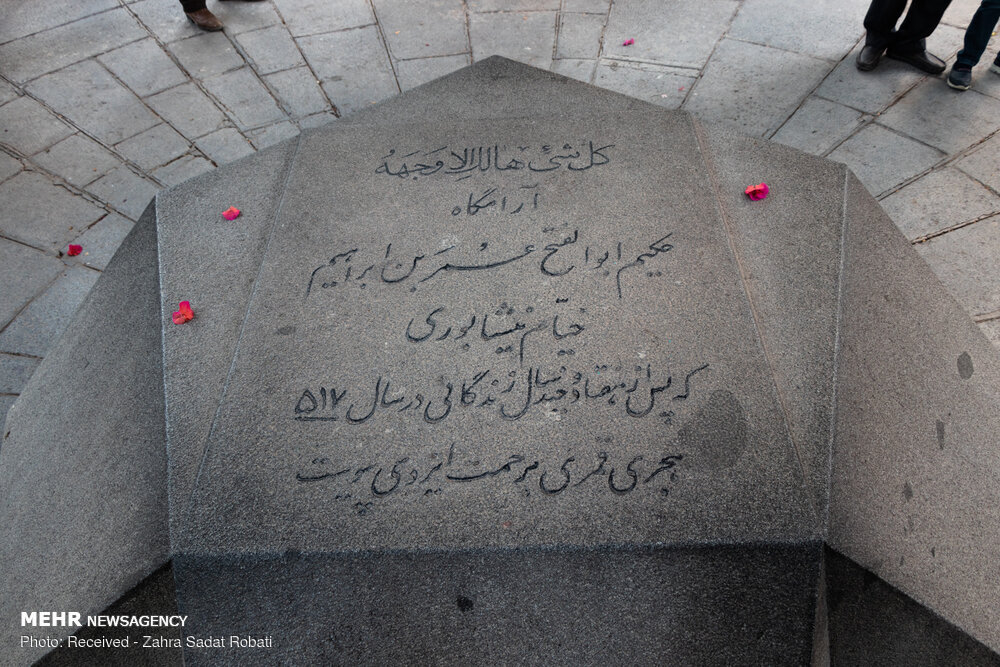 کل شئ هالک إلا وجهه
آرامگاه
حکیم ابوالفتح عُمَر بن ابراهیم
خیّام نیشابوری
که پس از هفتاد و چند سال زندگانی در سال ۵۱۷
هجری قمری برحمت ایزدی پیوست
MEHR NEWSAGENCY
Photo: Received - Zahra Sadat Robati